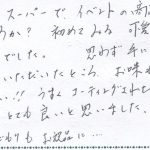 スーパーで イベントの
うか? 初めてみる 可
でした。 思わず手に
いただいたところ お味も
い!! うすくコーティングされた
とても良いと思いました。
も お製品に….